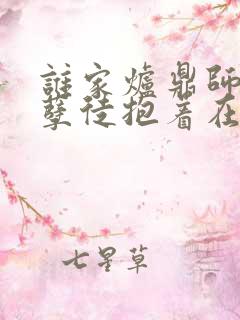 誰家爐鼎師
孽徒抱着在
七星草